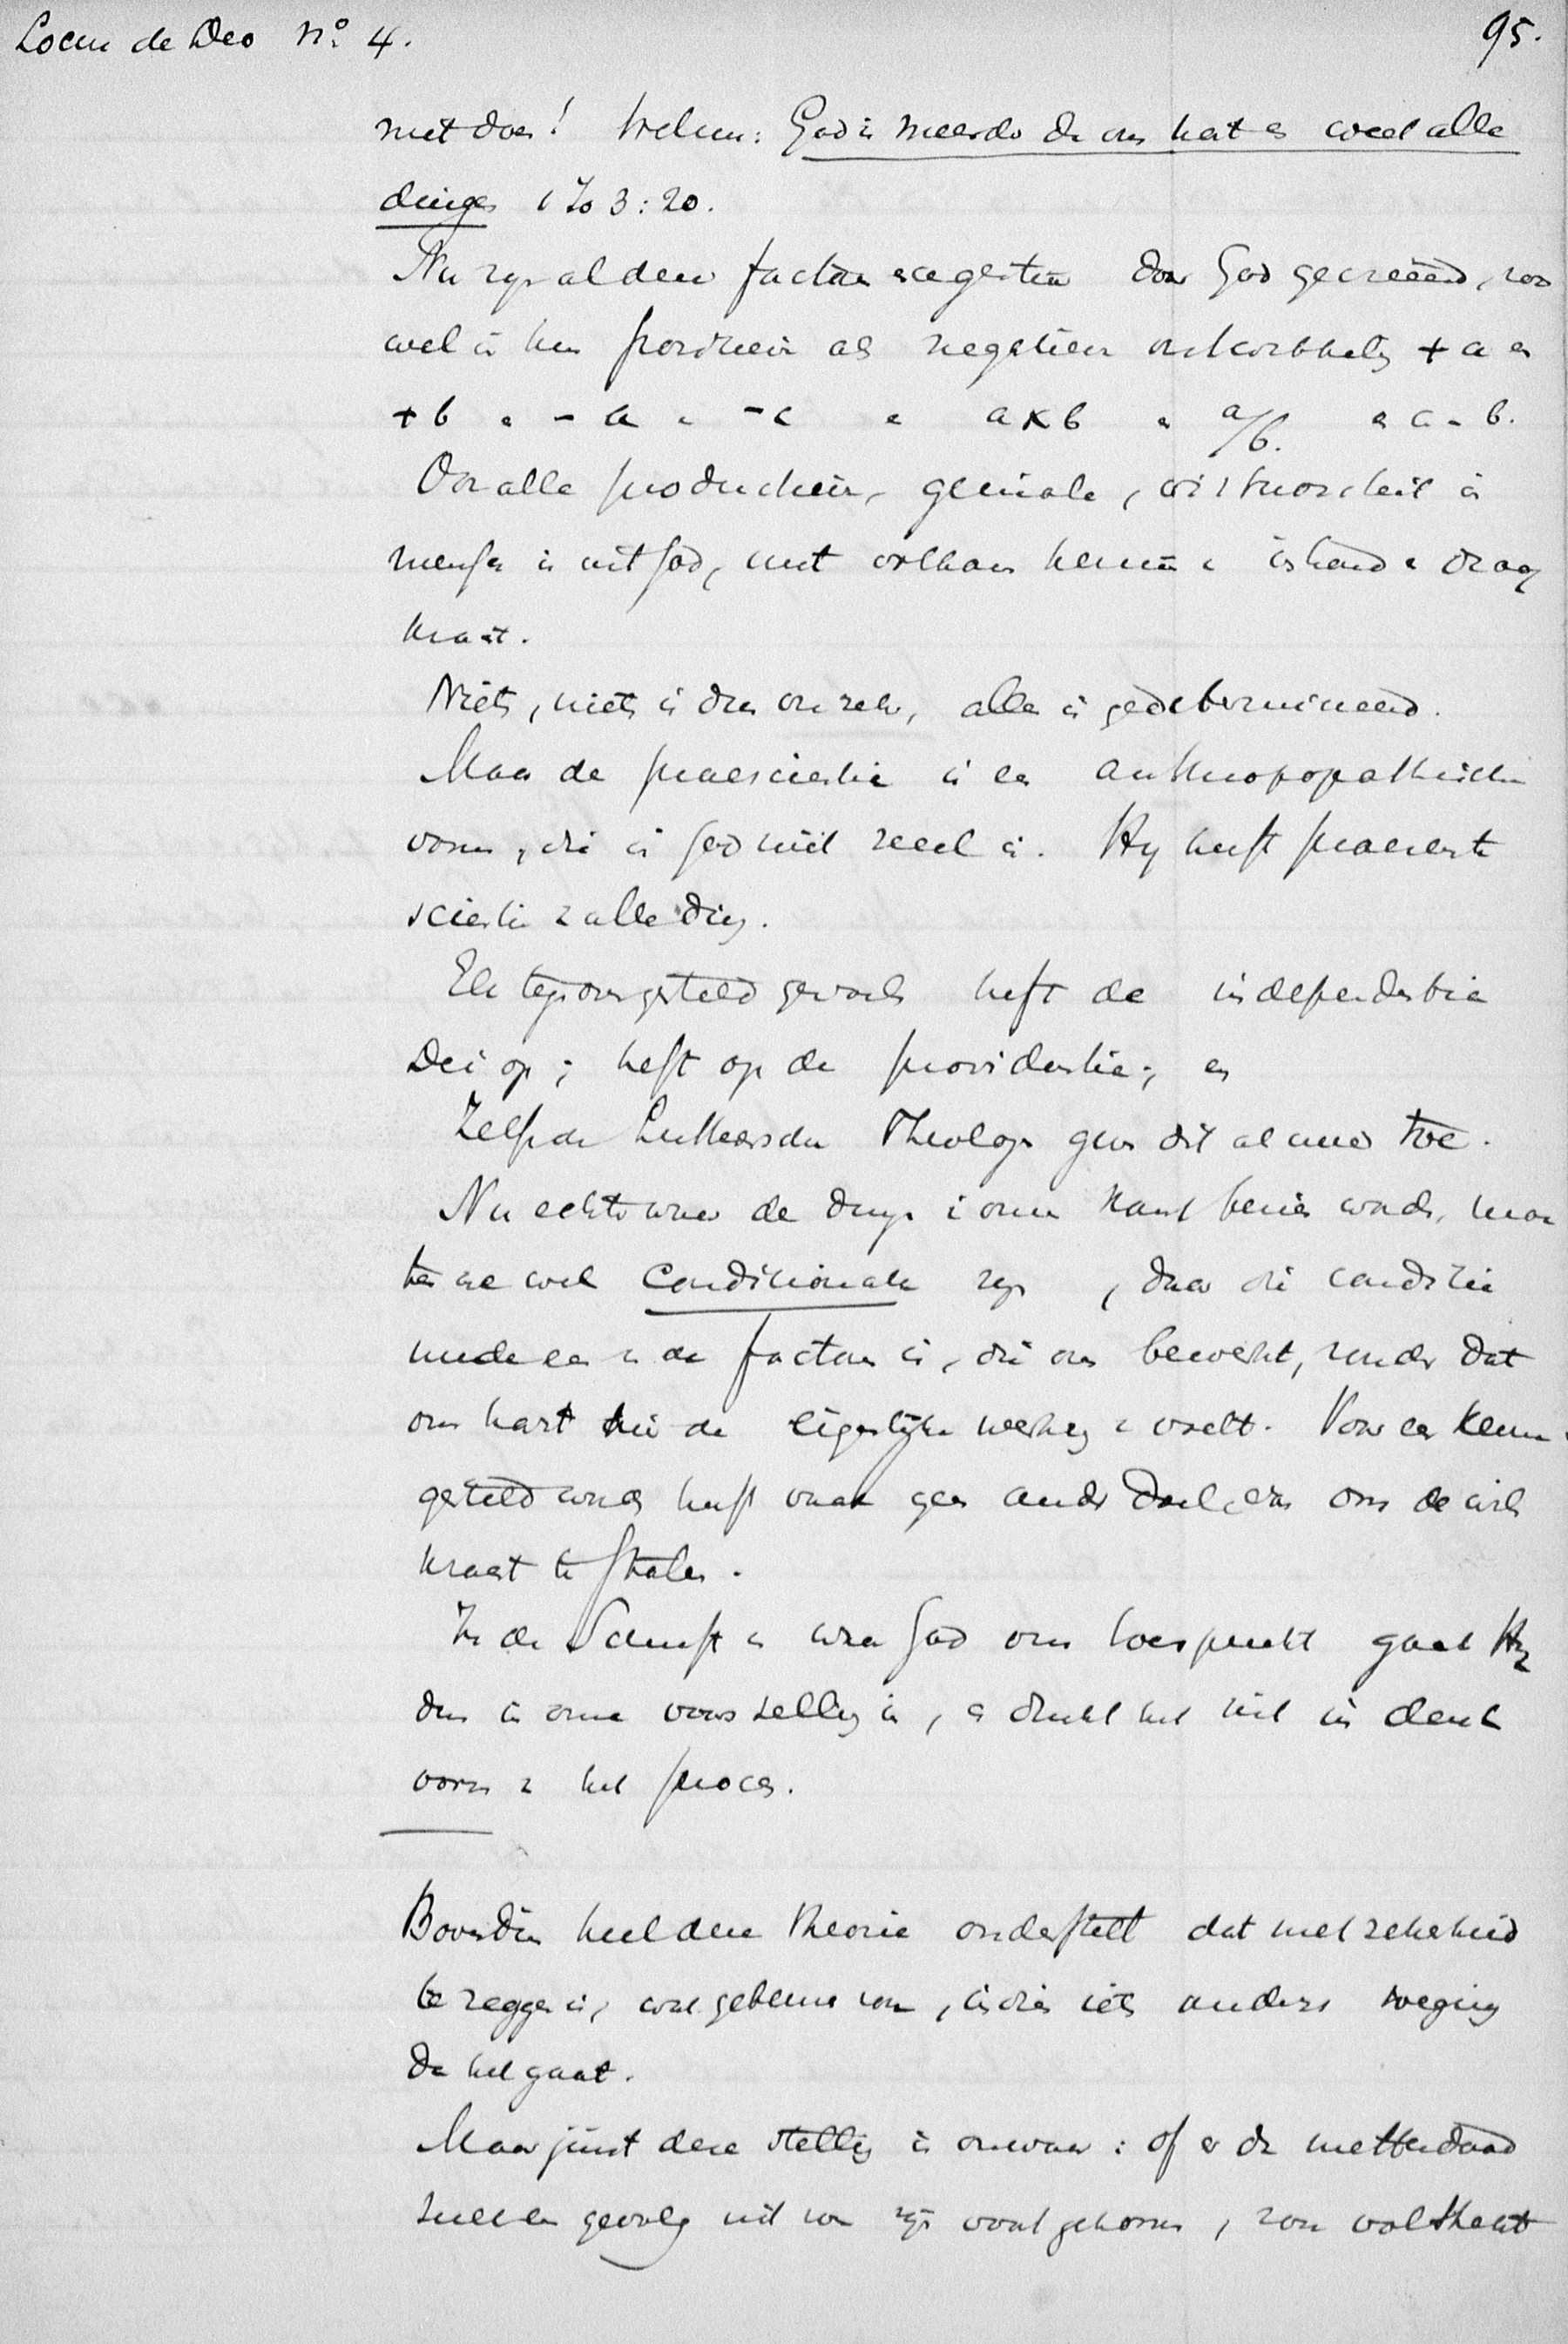 Locus de Deo No. 4. 95.
niet doen! Welnu: God is meerder dan ons hart en weet alle
dingen 1 Jo 3:20.
Nu zijn al deze factoren en gegevens door God gecreëerd, zoo
wel in hun positieven als negatieven + a en
+ b en - a en - c en a x b en a/b. en a - b.
Ook alle productiën, geniale, in
menschen is uit God, met kennis en verstand en draag
kracht.
Niets, niets is dus onzeker, alles is gedetermineerd.
Maar de praescientie is een anthropopathische
vorm, die in God niet reëel is. Hij heeft praesente
scientie van alle ding.
Elk tegenovergesteld gevoelen heft de independentia
Dei op; heft op de providentie; en
Zelfs de Luthersche Theologen geven dit almeer toe.
Nu echter waar de dingen in onze hand benien worden, moe
ten ze wel conditionale zijn, daar die conditie
mede een van de factoren is, die ons bewerkt, zonder dat
ons hart hier de eigenlijke werking van voelt. Voor een keuze
gesteld worden heeft vaak geen ander doel, dan om de wils
kracht te stalen.
In de Schrift en waar God ons toespreekt gaat Hij
dus in onze voorstelling in, en drukt het uit in denk
vorm van het proces.
Bovendien heel deze theorie onderstelt dat met zekerheid
te zeggen is, wat gebeuren zou, indien iets anders toeging
dan het gaat.
Maar juist deze stelling is onwaar: of er dan metterdaad
zulk een gevolg uit zou zijn voortgekomen, zou volstrekt